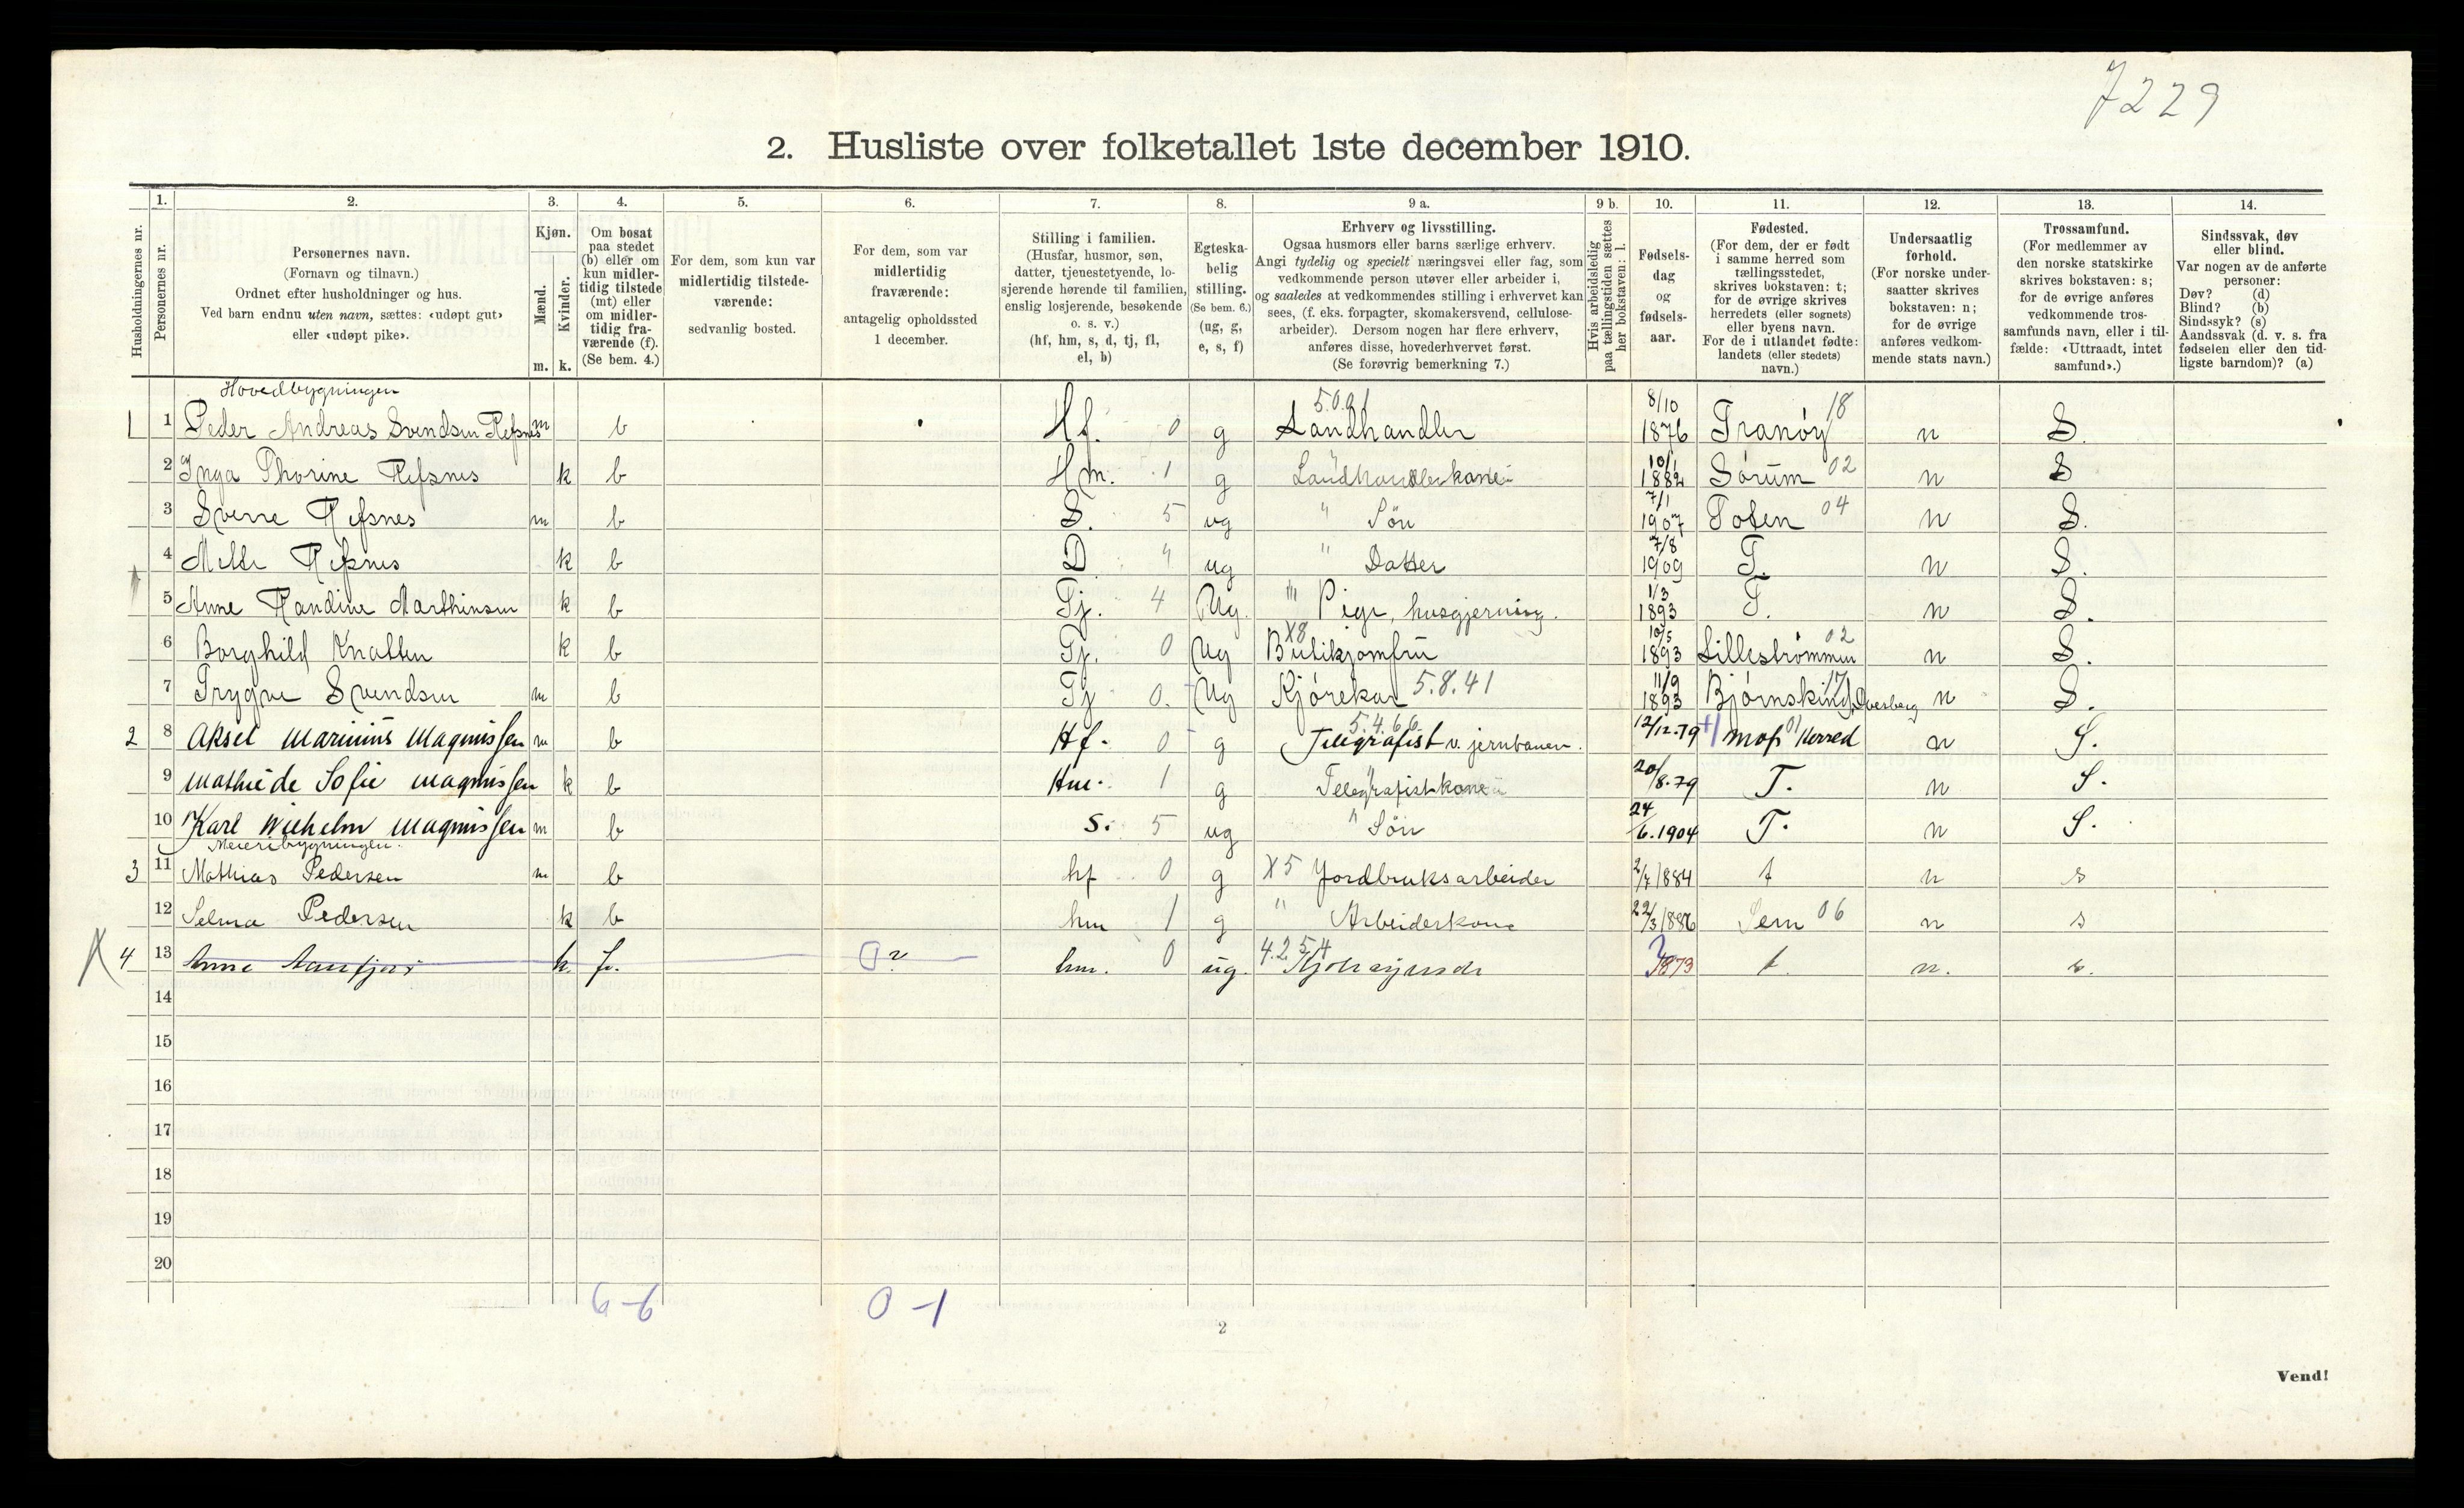 7229
2. Husliste over folketallet 1ste december 1910.
Husholdningernes nr.
1. Personernes nr.
2. Personernes navn. (Fornavn og tilnavn.) Ordnet efter husholdninger og hus. Ved barn endnu uten navn, sættes: «udøpt gut» eller «udøpt pike».
3. Kjøn. Mænd. m. Kvinder. k.
4. Om bosat paa stedet (b) eller om kun midlertidig tilstede (mt) eller om midlertidig fraværende (f). (Se bem. 4.)
5. For dem, som kun var midlertidig tilstedeværende: sedvanlig bosted.
6. For dem, som var midlertidig fraværende: antagelig opholdssted 1 december.
7. Stilling i familien. (Husfar, husmor, søn, datter, tjenestetyende, losjerende hørende til familien, enslig losjerende, besøkende o. s. v.) (hf, hm, s, d, tj, fl, el, b)
8. Egteskabelig stilling. (Se bem. 6.) (ug, g, e, s, f)
9 a. Erhverv og livsstilling. Ogsaa husmors eller barns særlige erhverv. Angi tydelig og specielt næringsvei eller fag, som vedkommende person utøver eller arbeider i, og saaledes at vedkommendes stilling i erhvervet kan sees, (f. eks. forpagter, skomakersvend, cellulosearbeider). Dersom nogen har flere erhverv, anføres disse, hovederhvervet først. (Se forøvrig bemerkning 7.)
9 b. Hvis arbeidsledig paa tællingstiden sættes her bokstaven: l.
10. Fødselsdag og fødselsaar.
11. Fødested. (For dem, der er født i samme herred som tællingsstedet, skrives bokstaven: t; for de øvrige skrives herredets (eller sognets) eller byens navn. For de i utlandet fødte: landets (eller stedets) navn.)
12. Undersaatlig forhold. (For norske undersaatter skrives bokstaven: n; for de øvrige anføres vedkommende stats navn.)
13. Trossamfund. (For medlemmer av den norske statskirke skrives bokstaven: s; for de øvrige anføres vedkommende trossamfunds navn, eller i tilfælde: «Uttraadt, intet samfund».)
14. Sindssvak, døv eller blind. Var nogen av de anførte personer: Døv? (d) Blind? (b) Sindssyk? (s) Aandssvak (d. v. s. fra fødselen eller den tidligste barndom)? (a)
Hovedbygningen
1 1 Peder Andreas Svendsen Refsnes m b Hf. 0 g 5.0.91 Landhandler 8/10 1876 Tranöy 18 n S.
2 Inga Thorine Refsnes k b Hm. 1 g Landhandlerkone 10/1 1882 Sørum 02 n S
3 Sverre Refsnes m b S. 5 ug " Søn 7/1 1907 Toten 04 n S.
4 Refsnes k b D " ug " Datter 7/8 1909 T. n S.
5 Anne Randine Marthinsen k b Tj. 4 Ug. Pige, husgjerning. 1/3 1893 T. n S.
6 Borghild Knatten k b Tj. 0 Ug X8 Butikjomfru 10/5 1893 Lillestrømmen 02 n S.
7 Trygve Svendsen m b Tj 0. Ug Kjørekar 5.8.41 11/9 1893 Bjørnskind, Dverberg 17 n S.
2 8 Aksel Marinius Magnussen m b Hf. 0 g 5.4.66 Telegrafist v. jernbanen. 12/12.79 Moss Herred 01 n S.
9 Mathilde Sofie Magnussen k b Hm. 1 g Telegrafistkone 20/8.79 T. n S.
10 Karl Wilhelm Magnussen m b S. 5 ug " Søn 24/6.1904 T. n S.
Meieribygningen.
3 11 Mathias Pedersen m b hf 0 g X5 Jordbruksarbeider 2/7 1884 t n s
12 Selma Pedersen k b hm 1 g " Arbeiderkone 22/3 1886 Sem 06 n s
4 13 Anne k. f. ? hm. 0 ug. 4.2.54 1873 t. n. s.
14
15
16
17
18
19
20
0-1
2
Vend!